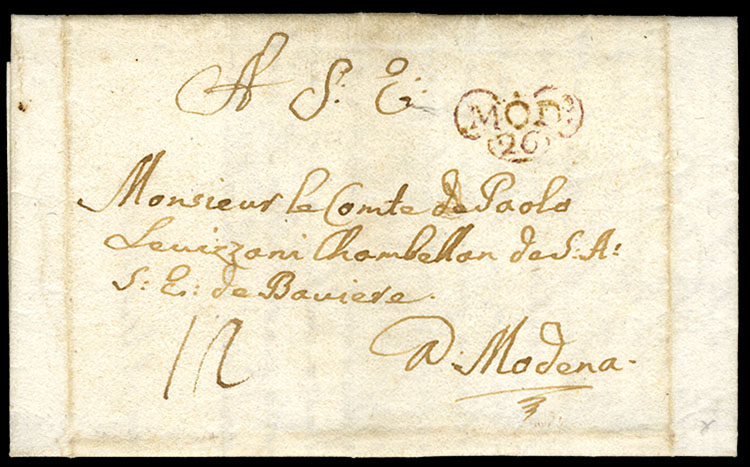 A S: E:
MOD:
26
Monsieur le Comte de Paolo
Levizzani Chambellan de S: A:
S: E: de Baviere.
12
a Modena.